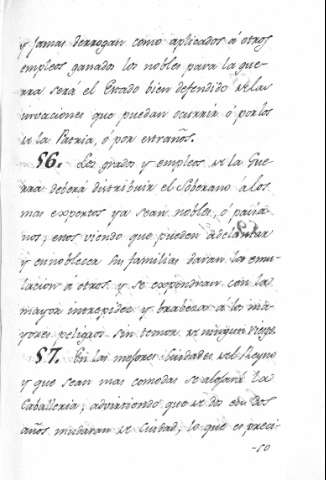 y jamas derrogan como aplicados á otros
empleos ganados los nobles para la gue-
rra será el Estado bien defendido de las
invaciones que puedan ocurrir ó por los
de la Patria, ó por extraños.
56. Los grados y empleos de la Gue-
rra deberá distribuir el Soberano á los
mas expertos ya sean nobles, ó paisa-
nos; estos viendo que pueden adelantar
y ennoblecer su familia daran la emu-
lacion á otros, y se expondran con la
mayor intrepidez y brabeza á los ma-
yores peligros sin temor de ningun riesgo.
57. En las mejores Ciudades del Reyno
y que sean mas comodas se alojará la
Caballeria; advirtiendo que de dos en dos
años mudaran de Ciudad; lo que es preci-
-so